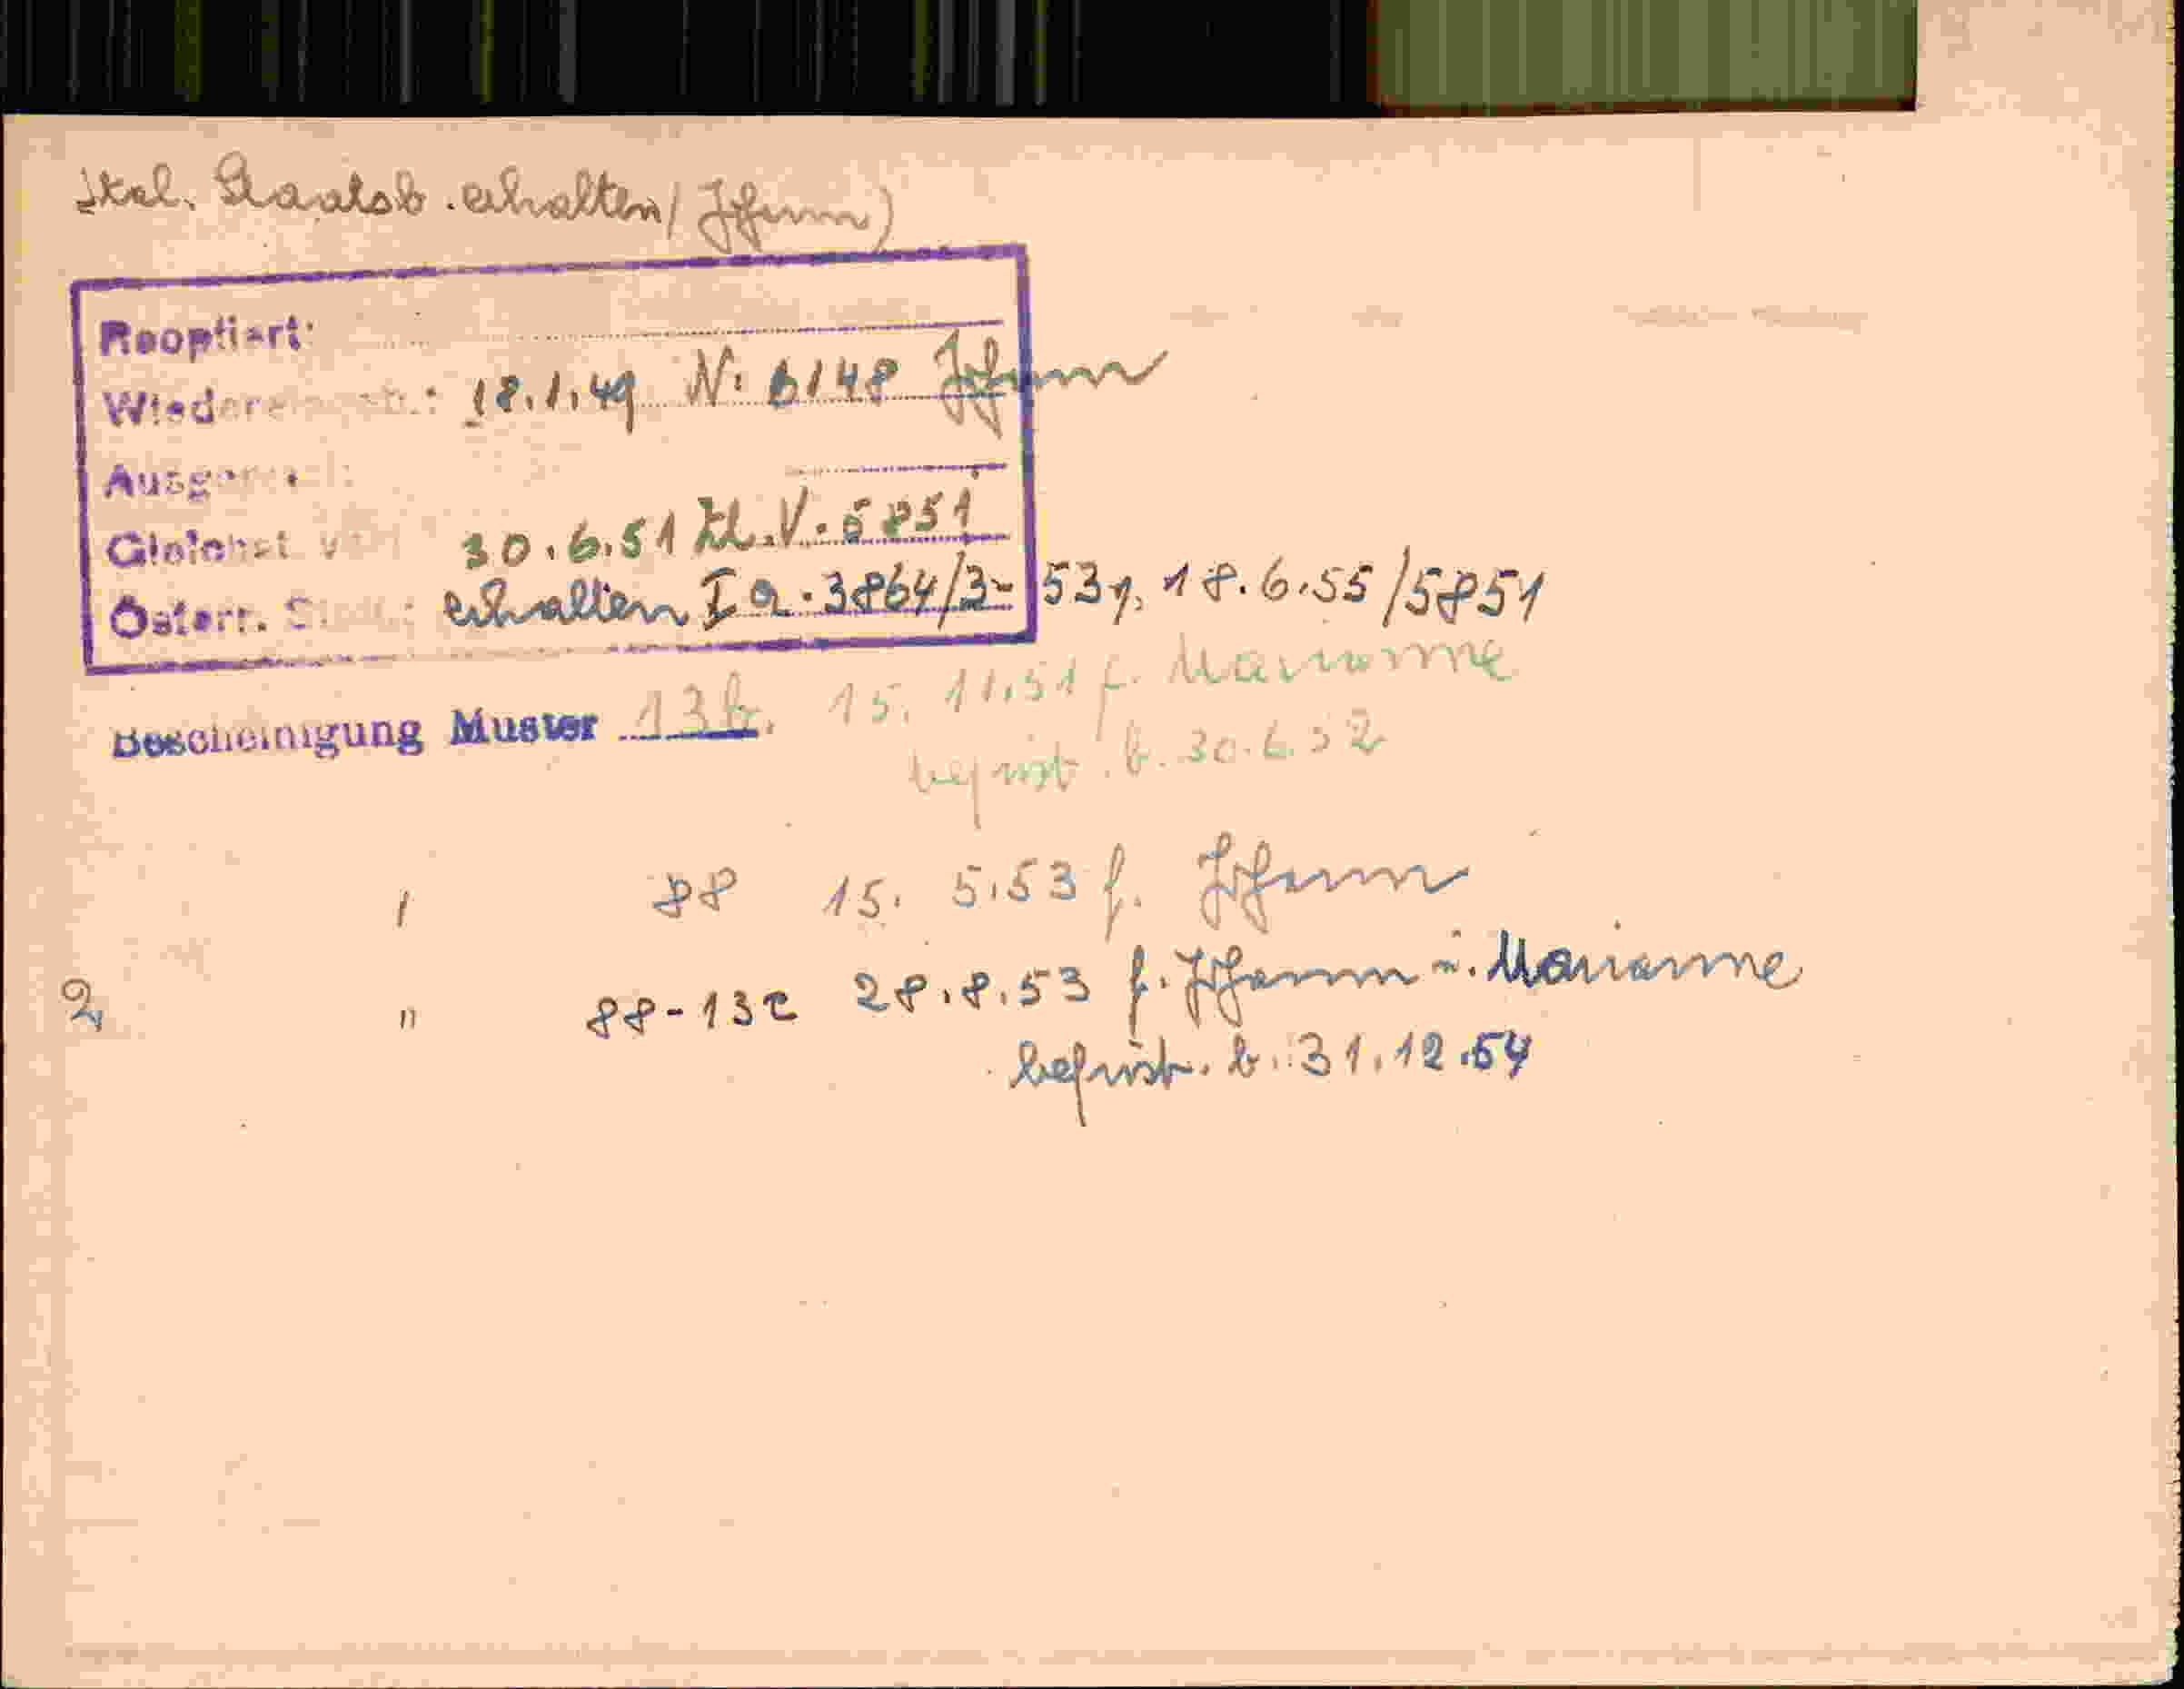 Ital. Staatsb. erhalten (Johann)
Reoptiert:
Wiedereingeb.: 18.1.49 N. 6148 Johann
Gleichst. v. 30.6.51 Zl. V. 5851
Österr. St. erhalten I a. 3864/3-53 18.6.55/5851
Bescheinigung Muster 13b. 15. 11.51 f. Marianne
befrist. b. 30.6.52
" 88 15. 5.53 f. Johann
2 " 88-13c 28.8.53 f. Johann u. Marianne
befrist. b. 31.12.54